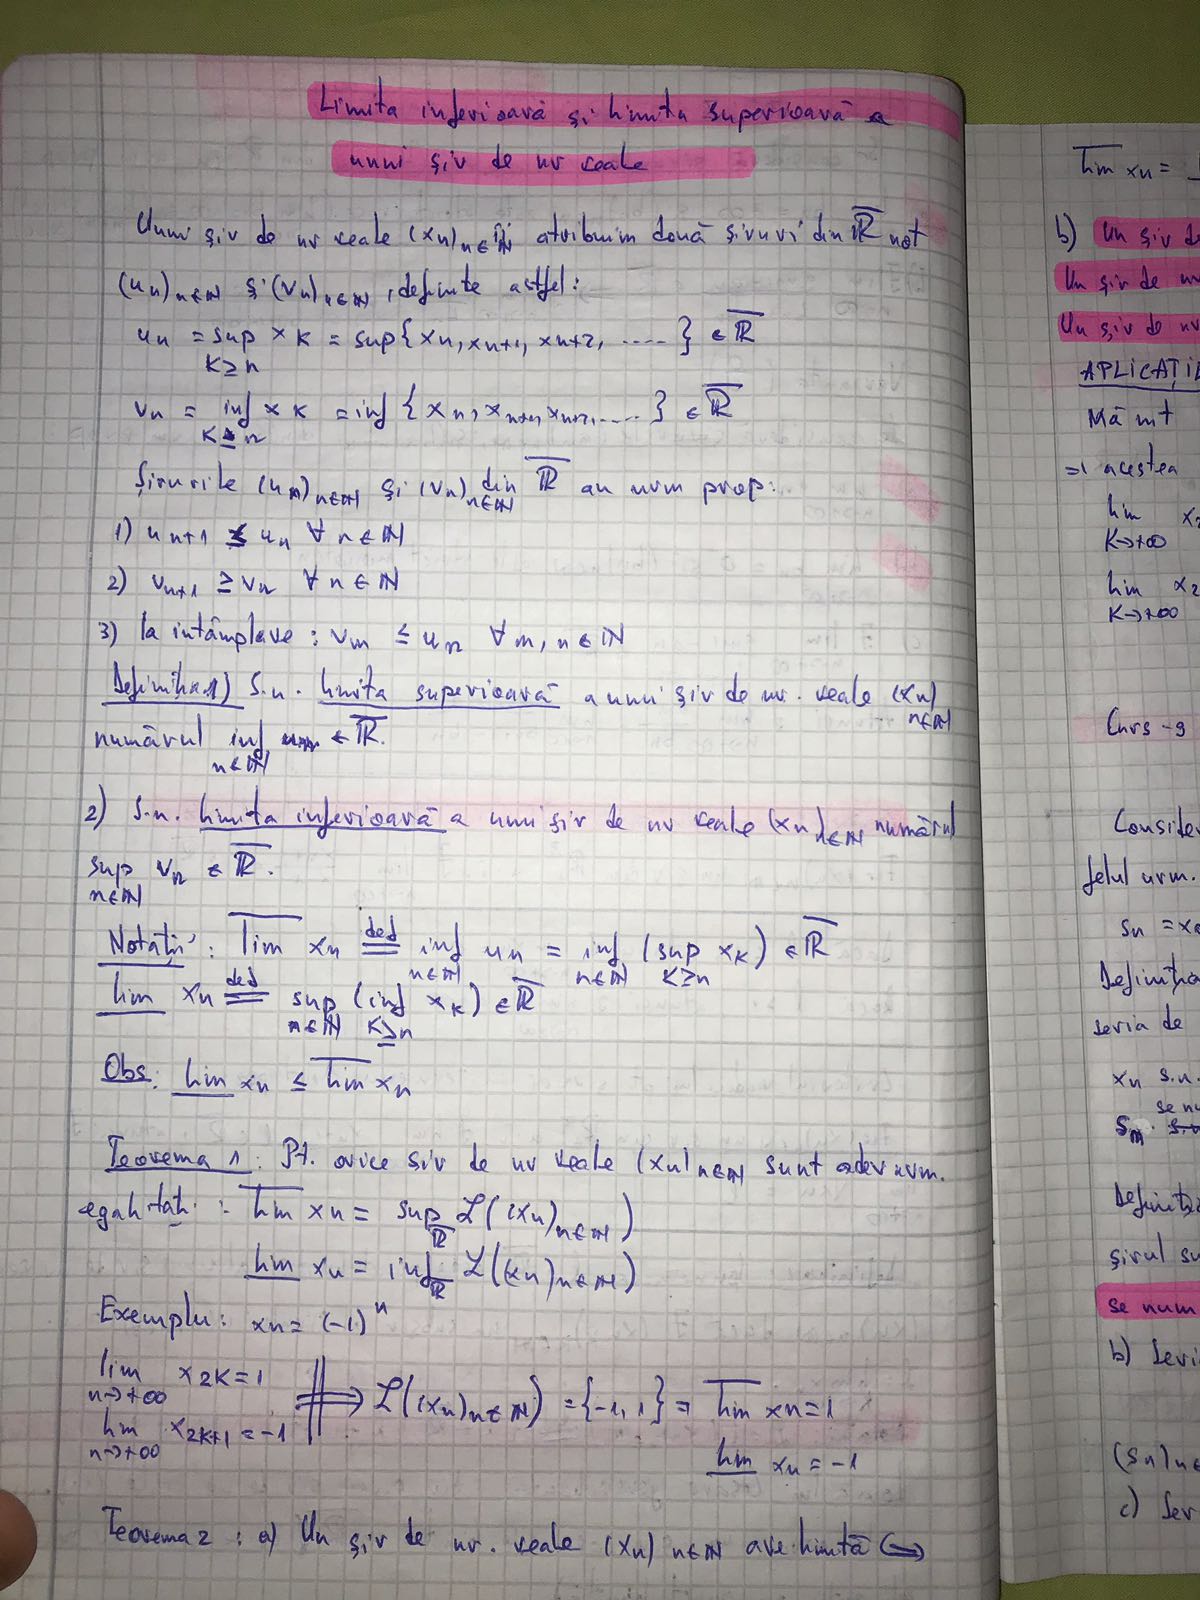 Limita inferioară și limita superioară a
unui șir de nr reale
Unui șir de nr reale (xn)n∈ℕ îi atribuim două șiruri din ℝ̅ not
(un)n∈ℕ și (vn)n∈ℕ, definite astfel:
un = sup xk = sup{xn, xn+1, xn+2, .....} ∈ ℝ̅
k≥n
vn = inf xk = inf{xn, xn+1, xn+2, .....} ∈ ℝ̅
k≥n
Șirurile (un)n∈ℕ și (vn)n∈ℕ din ℝ̅ au urm prop:
1) un+1 ≤ un ∀ n∈ℕ
2) vn+1 ≥ vn ∀ n∈ℕ
3) la întâmplare: vm ≤ un ∀ m, n∈ℕ
Definiția 1) S.n. limita superioară a unui șir de nr. reale (xn)n∈ℕ
numărul inf un ∈ ℝ̅.
n∈ℕ
2) S.n. limita inferioară a unui șir de nr reale (xn)n∈ℕ numărul
sup vn ∈ ℝ̅.
n∈ℕ
Notații: l̅i̅m̅ xn def== inf un = inf (sup xk) ∈ ℝ̅
n∈ℕ n∈ℕ k≥n
l̲i̲m̲ xn def== sup (inf xk) ∈ ℝ̅
n∈ℕ k≥n
Obs: l̲i̲m̲ xn ≤ l̅i̅m̅ xn
Teorema 1: Pt. orice șir de nr reale (xn)n∈ℕ sunt adev urm.
egalități: l̅i̅m̅ xn = sup ℒ((xn)n∈ℕ)
ℝ̅
l̲i̲m̲ xn = inf ℒ((xn)n∈ℕ)
ℝ̅
Exemplu: xn = (-1)^n
lim x2k = 1
n→+∞
lim x2k+1 = -1
n→+∞
⟹ ℒ((xn)n∈ℕ) = {-1, 1} ⇒ l̅i̅m̅ xn = 1
l̲i̲m̲ xn = -1
Teorema 2: a) Un șir de nr. reale (xn)n∈ℕ are limită ⇔
l̅i̅m̅ xn =
b) Un șir d
Un șir de
Un șir de nr
APLICAȚII
=> acestea
lim
k→+∞
lim
k→+∞
Curs-9
Consider
felul urm.
sn =
Definiția
seria de
xn s.n.
se nu
sm
șirul
se num
b)
(sn)n∈
c)